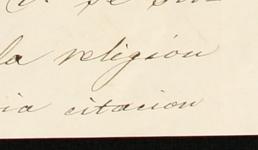 la religión
ia citacion